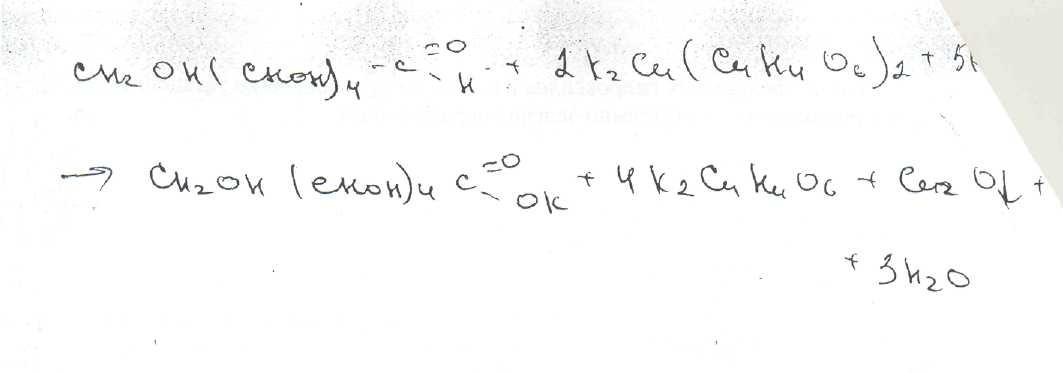 CH₂OH(CHOH)₄-C=O-H + 2K₂Cu(C₄H₄O₆)₂ + 5
→ CH₂OH(CHOH)₄C=O-OK + 4K₂C₄H₄O₆ + Cu₂O↓ +
+ 3H₂O